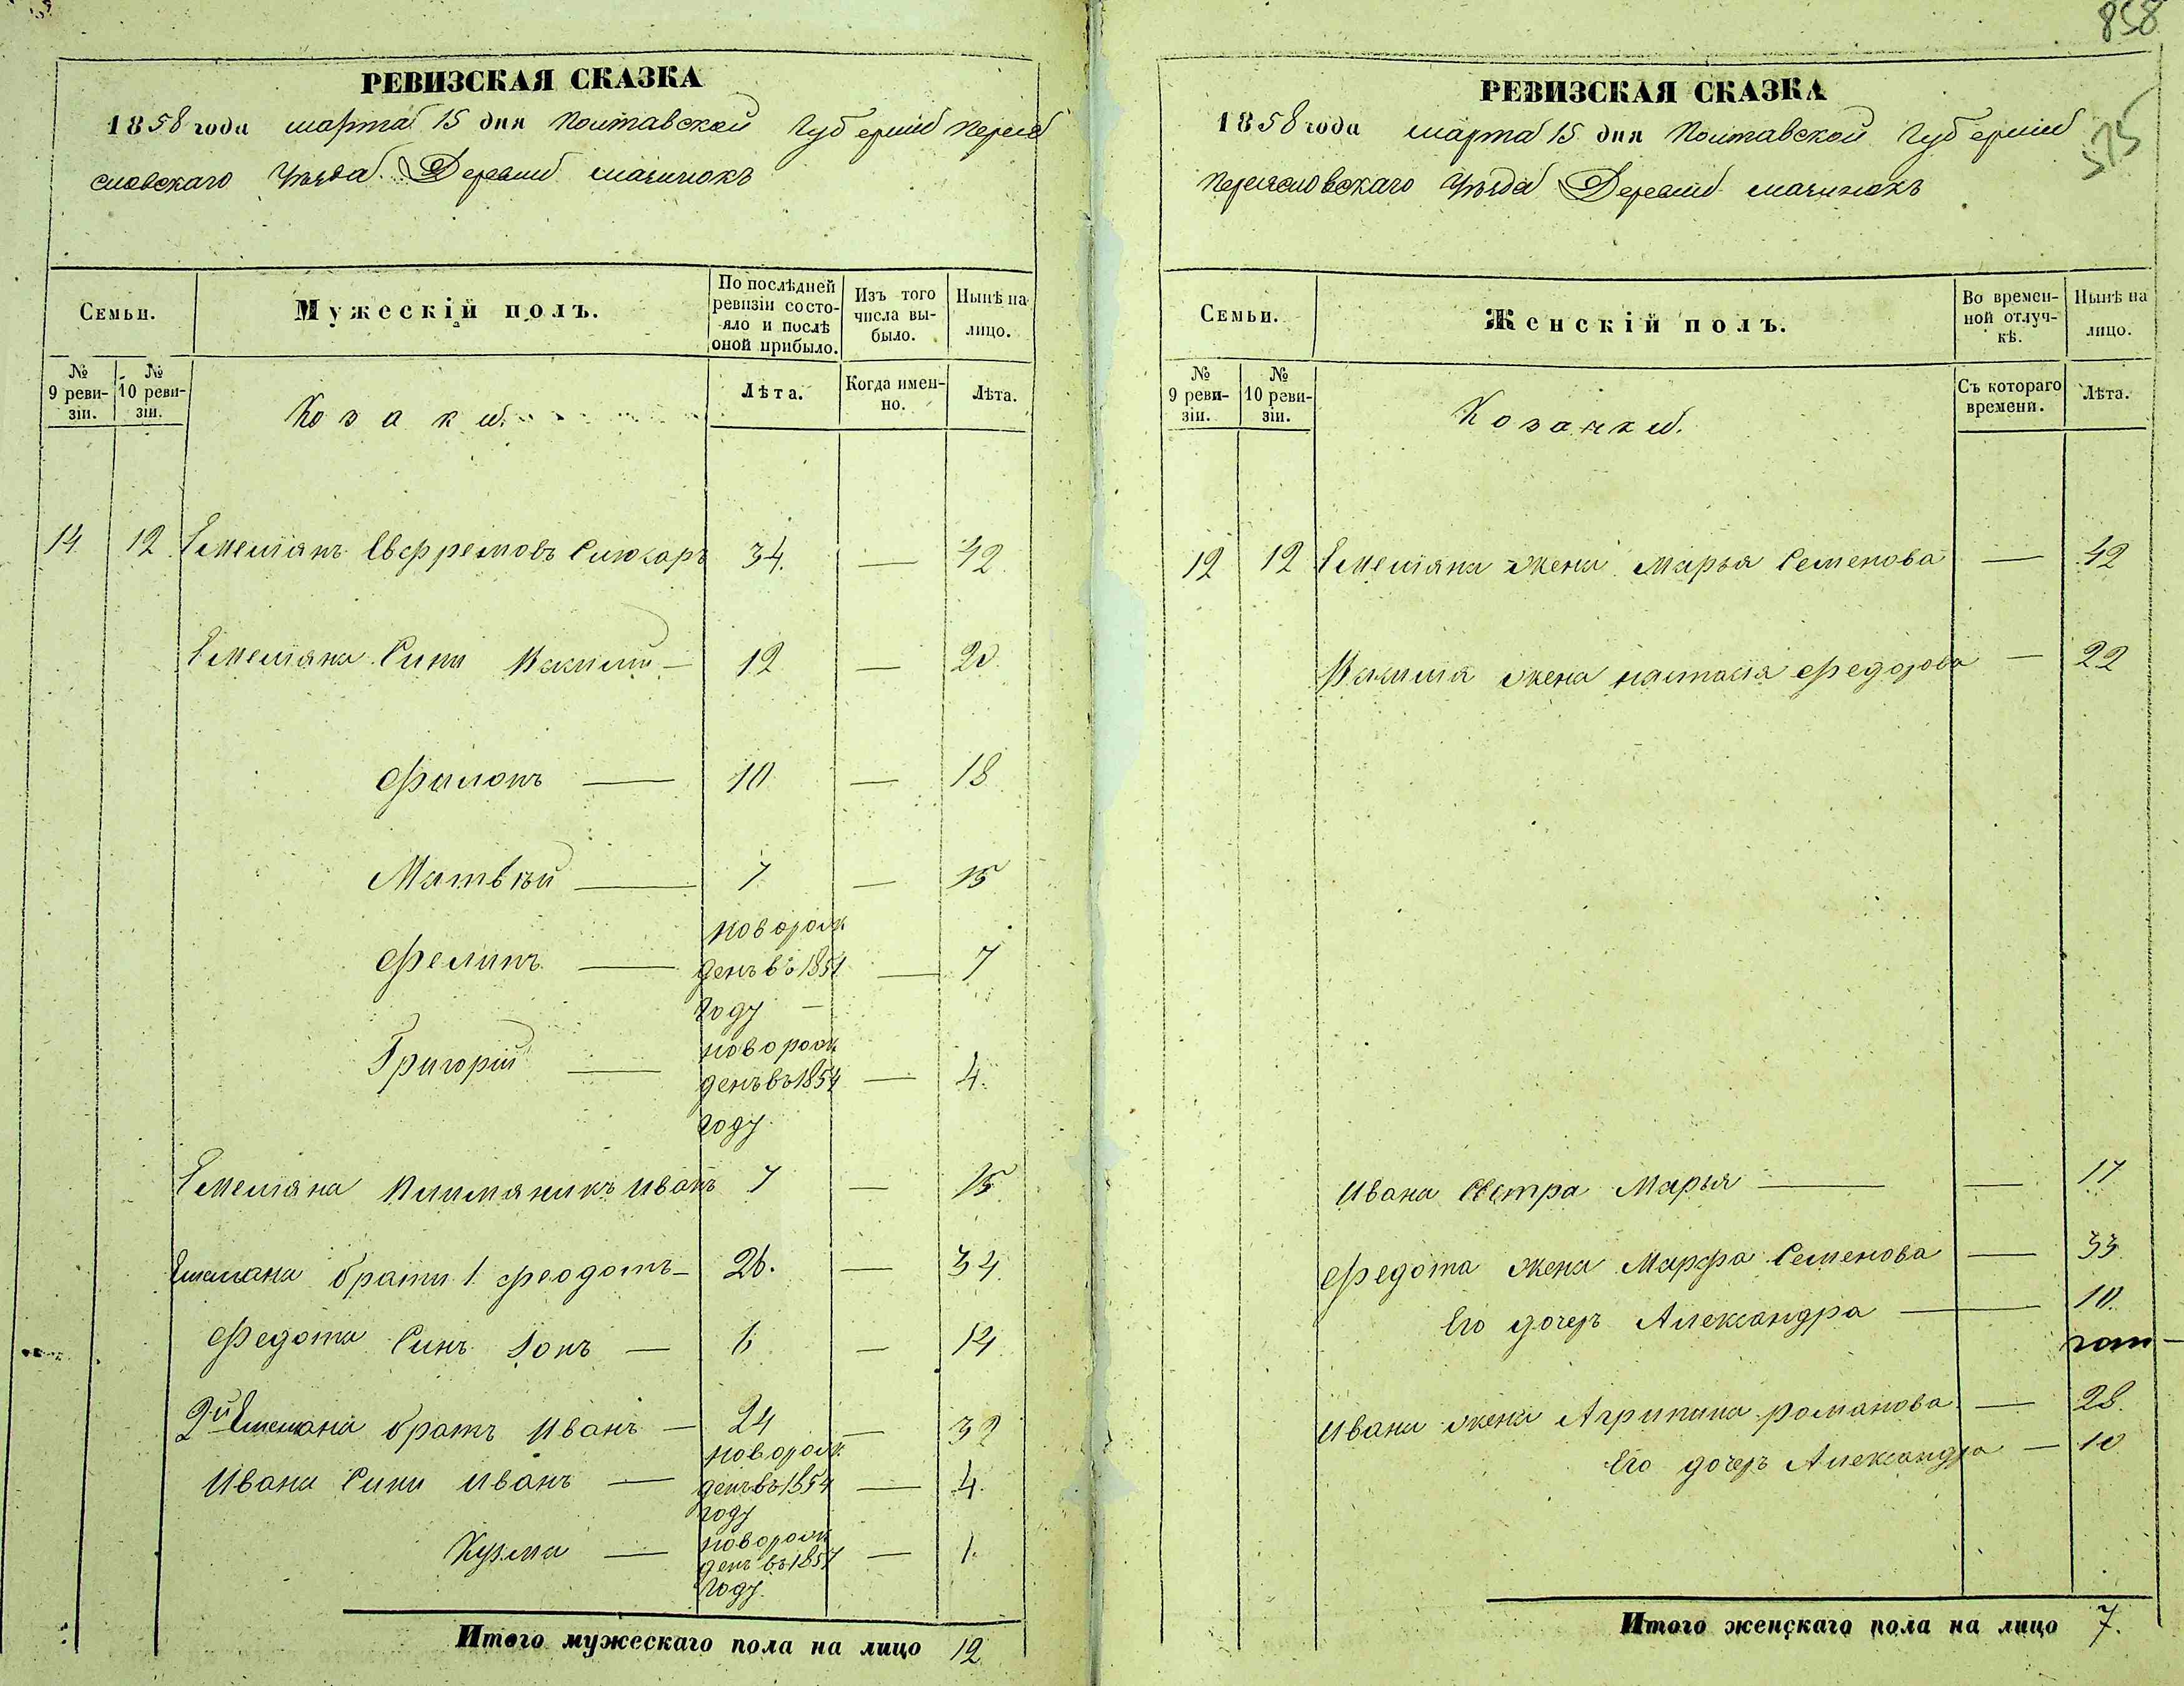 858
РЕВИЗСКАЯ СКАЗКА
1858 года марта 15 дня Полтавской Губерніи Перея
словскаго Уѣзда Деревни
Семьи.
Мужескій полъ.
По послѣдней ревизіи состояло и послѣ оной прибыло.
Изъ того числа выбыло.
Нынѣ на лицо.
№ 9 ревизіи.
№ 10 ревизіи.
Козаки.
Лѣта.
Когда именно.
Лѣта.
14 12 Емелянъ Евфремовъ 34. — 42
Емеляна Сини — 12 — 20.
Филонъ — 10 — 18
Матвѣй — 7 — 15
Фелипъ — новорожденъ въ 1851 году — 7
Григорій — новорожденъ въ 1854 году — 4.
Емеляна племяникъ Иванъ 7 — 15
Емеляна брати 1. Феодотъ — 26. — 34
Федота Синъ — 6 — 14
2й Емеляна братъ Иванъ — 24 — 32
Ивана Сини Иванъ — новорожденъ въ 1854 году — 4.
Кузма — новорожденъ въ 1857 году — 1.
Итого мужескаго пола на лицо 12
РЕВИЗСКАЯ СКАЗКА
1858 года марта 15 дня Полтавской Губерніи
575
Переясловскаго Уѣзда Деревни
Семьи.
Женскій полъ.
Во временной отлучкѣ.
Нынѣ на лицо.
№ 9 ревизіи.
№ 10 ревизіи.
Козачки.
Съ котораго времени.
Лѣта.
12 12 Емеляна жена Марья Семенова — 42
жена настасія Федорова — 22
Ивана Сестра Марья — — 17
Федота жена Марфа Семенова — 33
Его дочеръ Александра — 10.
Ивана жена Агрипина романова — 28.
Его дочеръ Александра — 10
Итого женскаго пола на лицо 7.